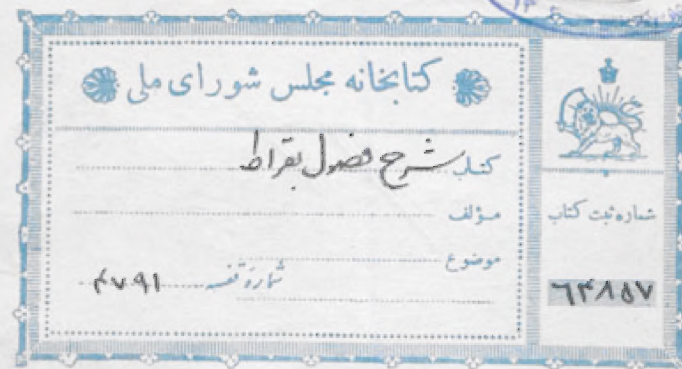 کتابخانه مجلس شورای ملی
کتاب شرح فصول بقراط
مؤلف
موضوع
شماره قفسه ۴۷۹۱
شماره ثبت کتاب
۶۴۸۵۷